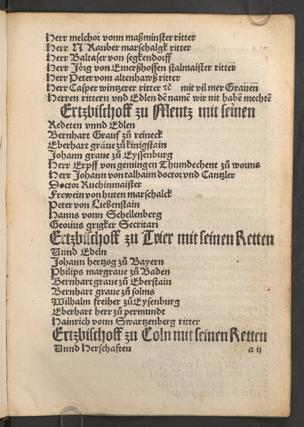 Herr melchor vonn maßminster ritter
Herr N Rauber marschalgk ritter
Herr Baltaser von segkendorff
Herr Jörg von Emerßhoffen stalmaister ritter
Herr Peter vom altenhawß ritter
Herr Casper wintzerer ritter ꝛc mit vil mer Grauen
Herren rittern vnd Edlen dē namē wir nit habē mechtē
Ertzbischoff zu Mentz mit seinen
Redeten vnnd Edlen
Bernhart Grauf zu reineck
Eberhart graue zu kinigstain
Johann graue zu Eyssenburg
Herr Erpff von gemingen Thumdechent zu worms
Herr Johann von talhaim doctor vnd Cantzler
Doctor Kuchinmaister
Frewein von huten marschalck
Peter von Liebenstain
Hanns vonn Schellenberg
Georius grigker Secritari
Ertzbischoff zu Trier mit seinen Retten
Vnnd Edeln
Johann hertzog zu Bayern
Philips margraue zu Baden
Bernhart graue zu Eberstain
Bernhart graue zu solms
Wilhalm freiher zu Eysenburg
Eberhart herr zu permundt
Hainrich vonn Swartzenberg ritter
Ertzbischoff zu Coln mit seinen Retten
Vnnd Herschaften
a ij